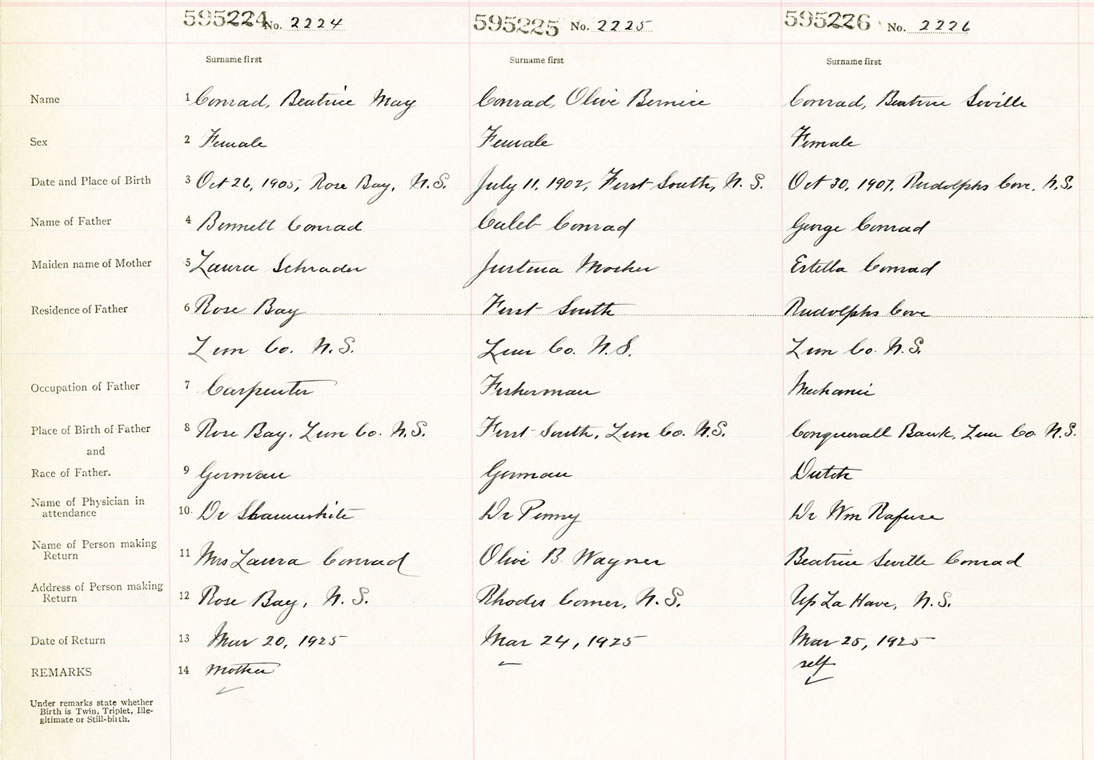 595224 No. 2224 595225 No. 2225 595226 No. 2226
Surname first Surname first Surname first
Name 1 Conrad, Beatrice May Conrad, Olive Bernice Conrad, Beatrice Seville
Sex 2 Female Female Female
Date and Place of Birth 3 Oct 26, 1905, Rose Bay, N.S. July 11, 1902, First South, N.S. Oct 30, 1907, Rudolphs Cove, N.S.
Name of Father 4 Bennett Conrad Caleb Conrad George Conrad
Maiden name of Mother 5 Laura Schrader Justina Mosher Estella Conrad
Residence of Father 6 Rose Bay First South Rudolphs Cove
Lun Co. N.S. Lun Co. N.S. Lun Co. N.S.
Occupation of Father 7 Carpenter Fisherman Mechanic
Place of Birth of Father 8 Rose Bay. Lun Co. N.S. First South, Lun Co. N.S. Conquerall Bank, Lun Co N.S.
and
Race of Father. 9 German German Dutch
Name of Physician in
attendance 10. Dr Dr Penny Dr Wm Rafuse
Name of Person making
Return 11 Mrs Laura Conrad Olive B. Wagner Beatrice Seville Conrad
Address of Person making
Return 12 Rose Bay, N.S. Rhodes Corner, N.S. Up La Have, N.S.
Date of Return 13 Mar 20, 1925 Mar 24, 1925 Mar 25, 1925
REMARKS 14 Mother self
Under remarks state whether
Birth is Twin, Triplet, Ille-
gitimate or Still-birth.